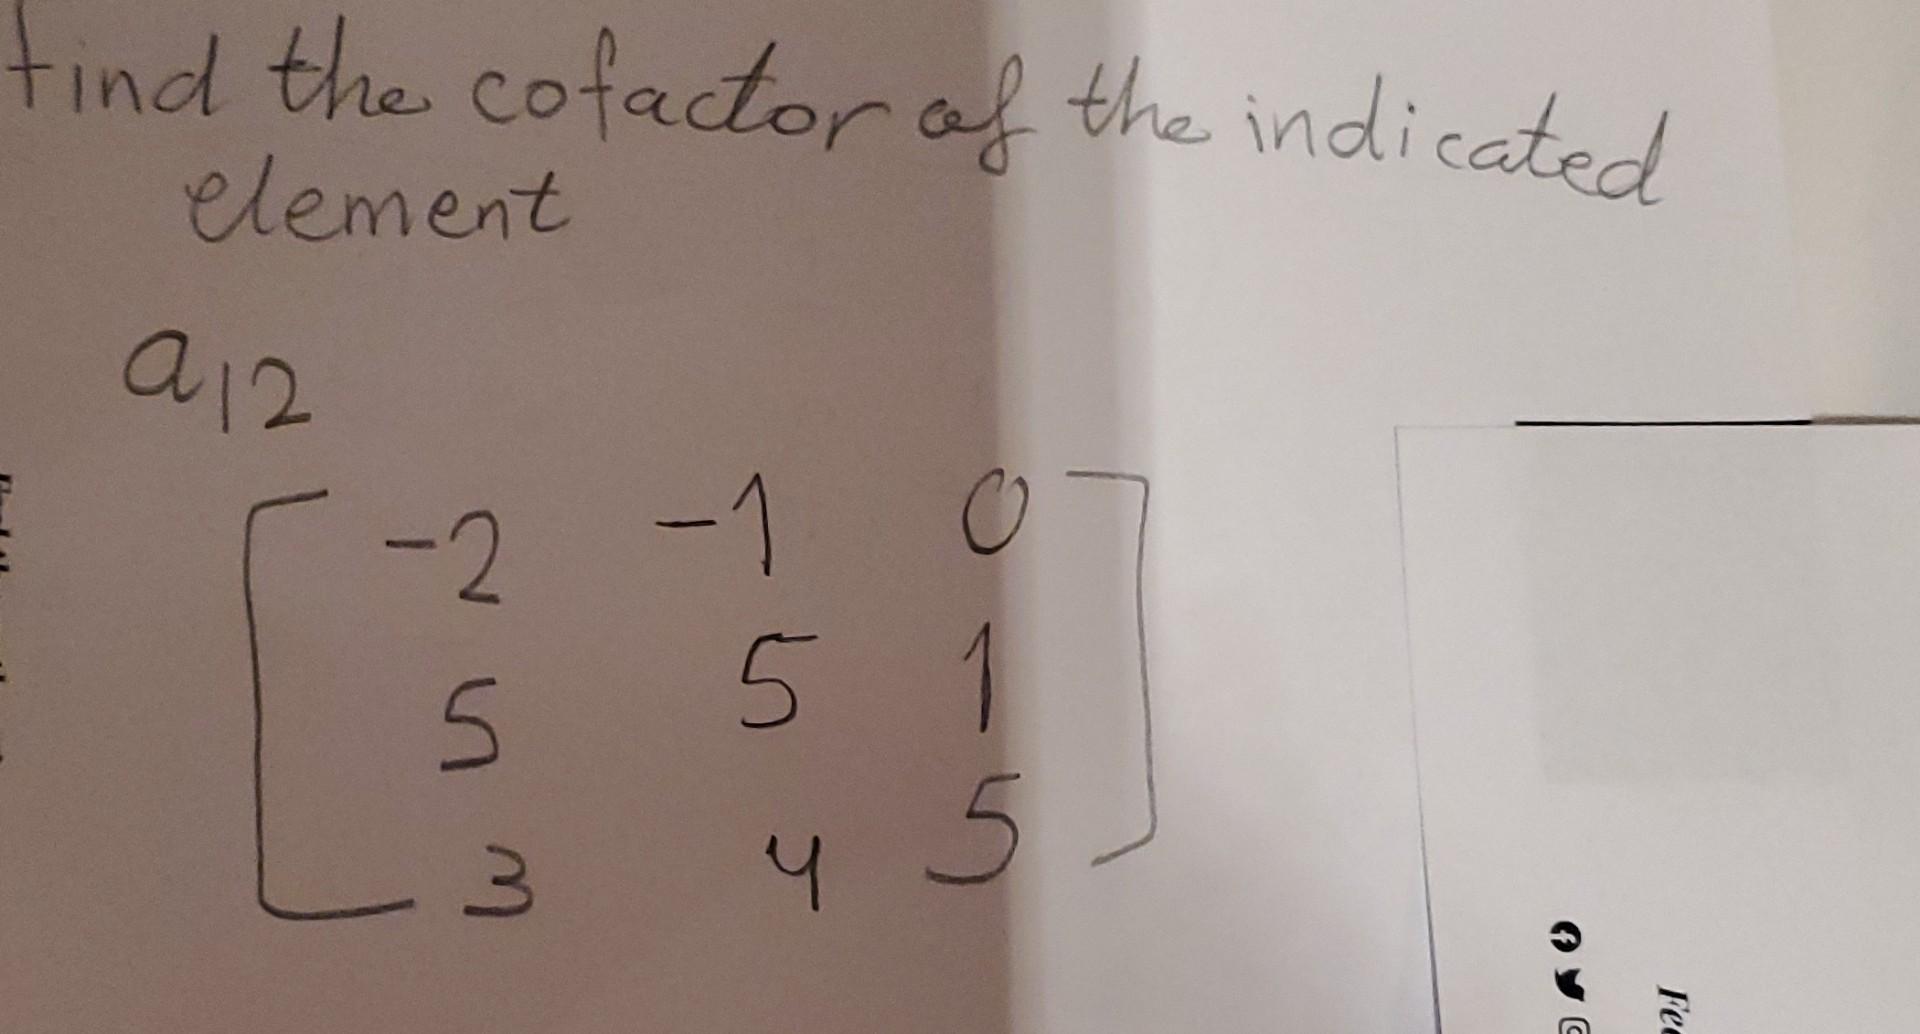 find the cofactor of the indicated
element
a12
-2 -1 0
5 5 1
3 4 5